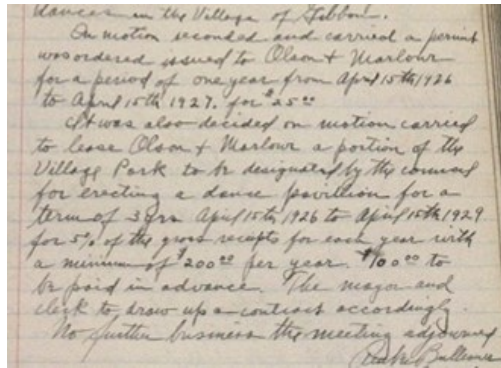 dances in the Village of Gibbon.
On motion seconded and carried a permit
was ordered issued to Olson & Marlowe
for a period of one year from April 15th 1926
to April 15th 1927. for $25.00
It was also decided on motion carried
to lease Olson & Marlowe a portion of the
Village Park to be designated by the council
for erecting a dance pavillion for a
term of 3 yrs April 15th 1926 to April 15th 1929
for 5% of the gross receipts for each year with
a minimum of $200.00 per year. $100.00 to
be paid in advance. The mayor and
clerk to draw up a contract accordingly.
No further business the meeting adjourned